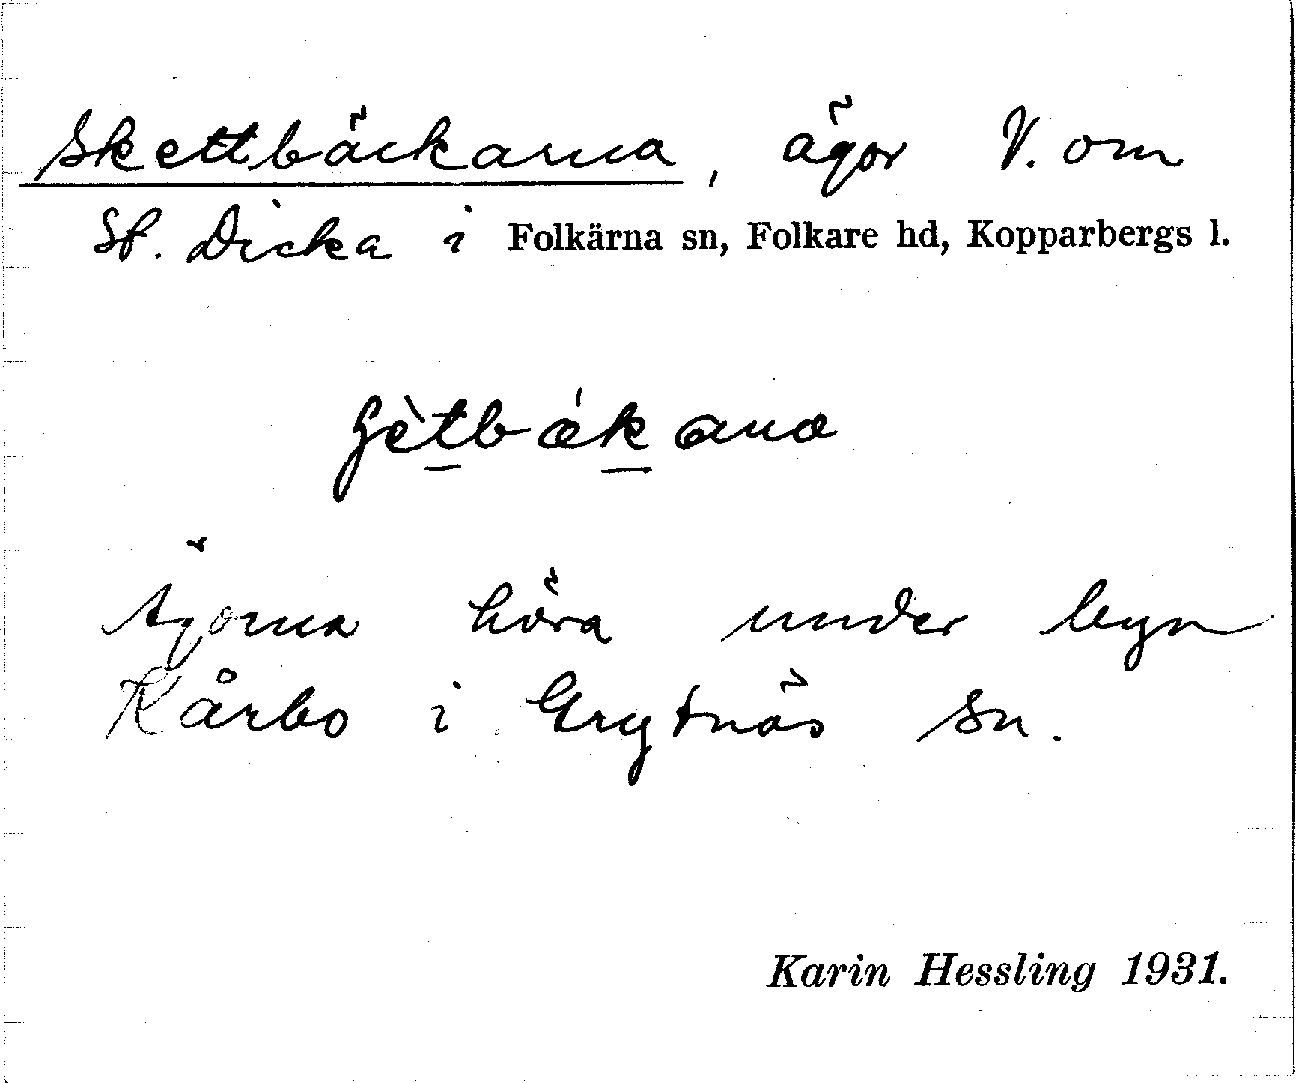 Skettbäckarna, ägor V. om
St. Dicka i Folkärna sn, Folkare hd, Kopparbergs l.
Ägorna höra under byn
Kårbo i Grytnäs sn.
Karin Hessling 1931.